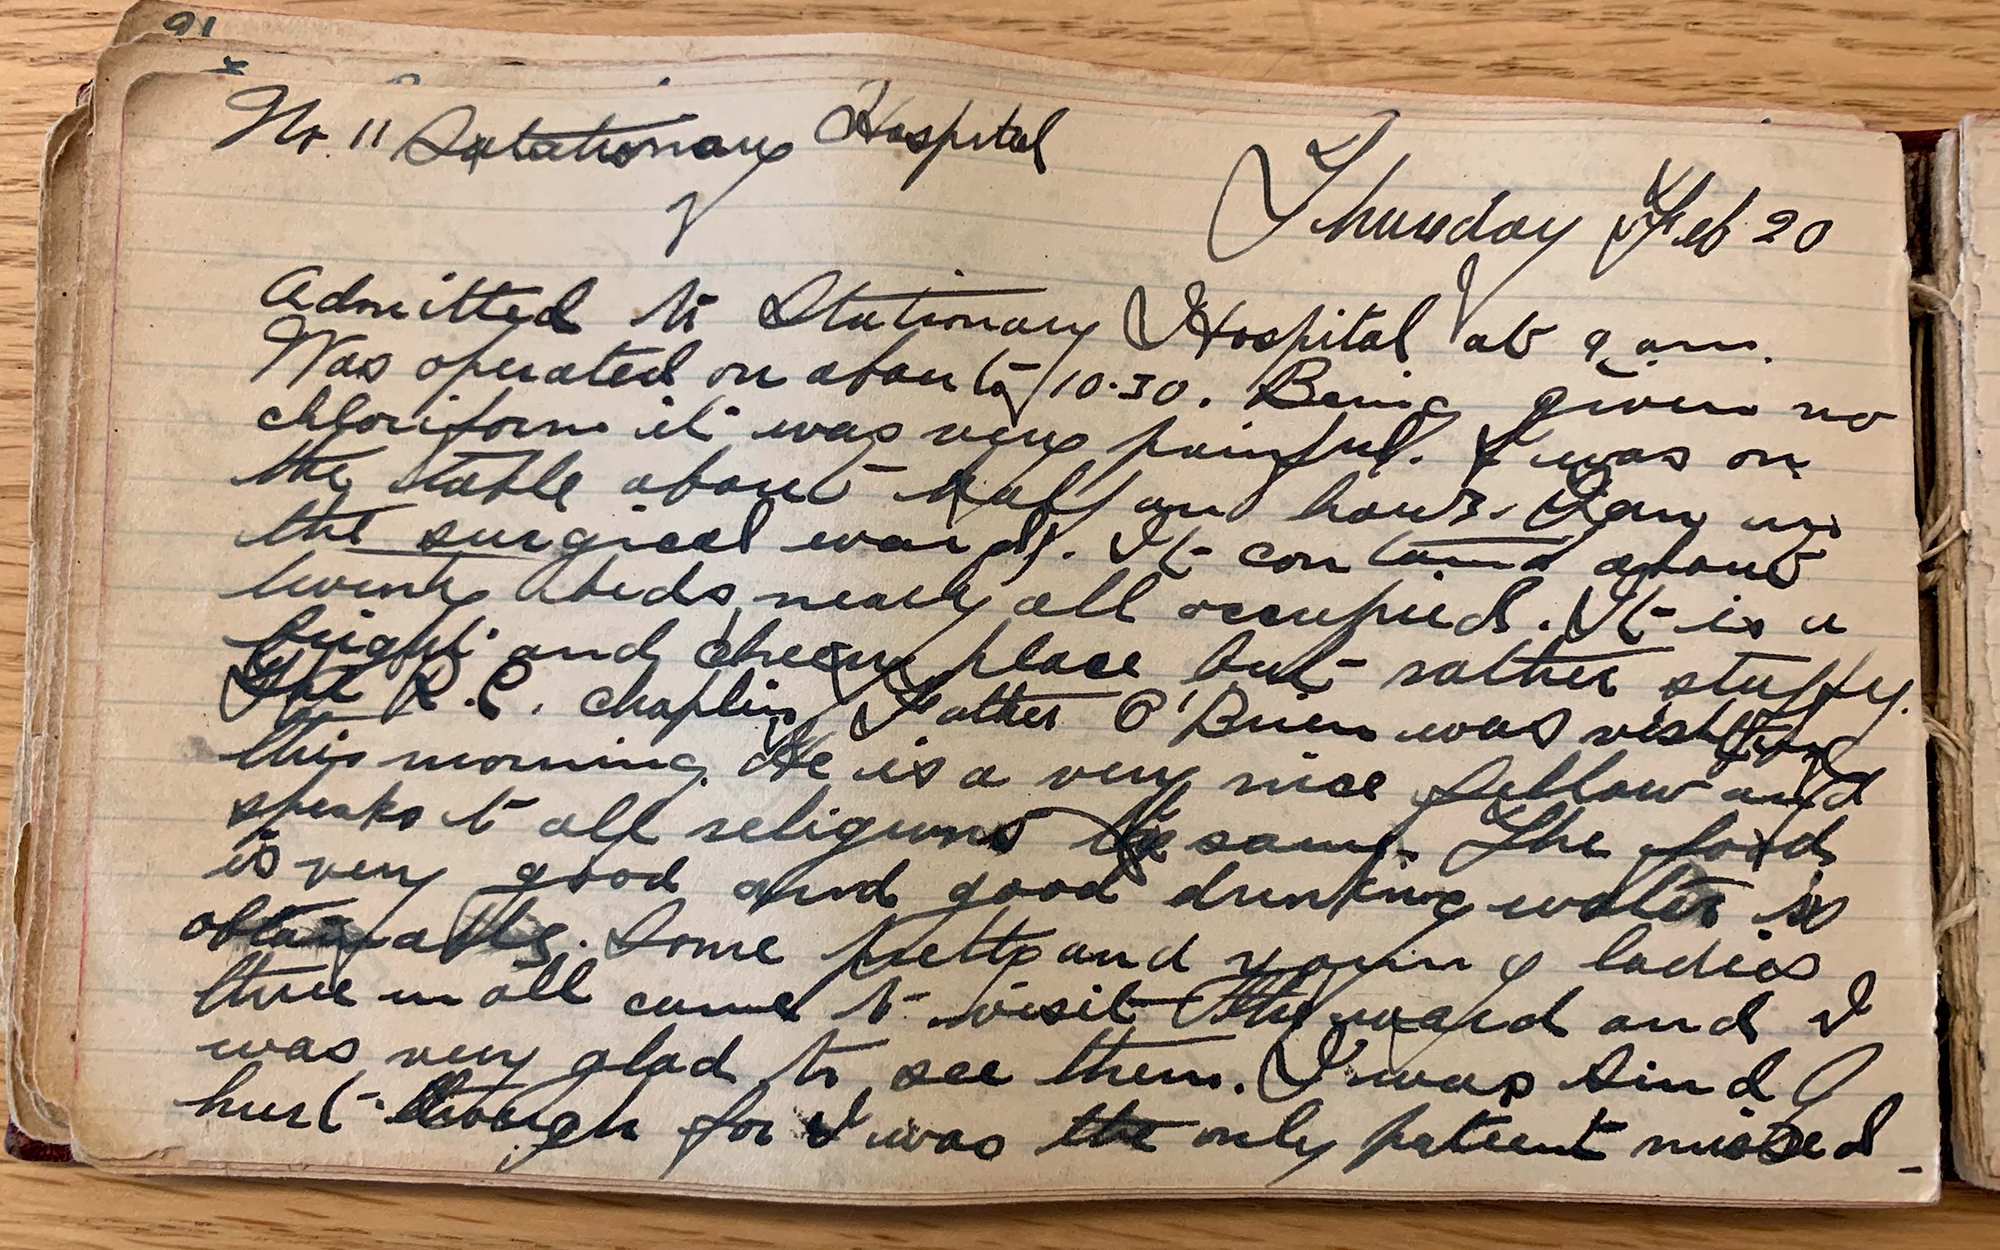 91
No. 11 Statationary Hospital
Thursday Feb 20
Admitted to Stationary Hospital at 9 am.
Was operated on about 10.30. Being given no
chloriform it was very painful. I was on
the table about half an hour. I am in
the surgical ward. It contains about
twenty beds, nearly all occupied. It is a
bright and cheery place but rather stuffy.
The R.C. chaplin Father O'Brien was visiting
this morning. He is a very nice fellow and
speaks to all religions the same. The food
is very good and good drinking water is
obtainable. Some pretty and young ladies
three in all came to visit the ward and I
was very glad to see them. I was kind of
hurt though for I was the only patient missed